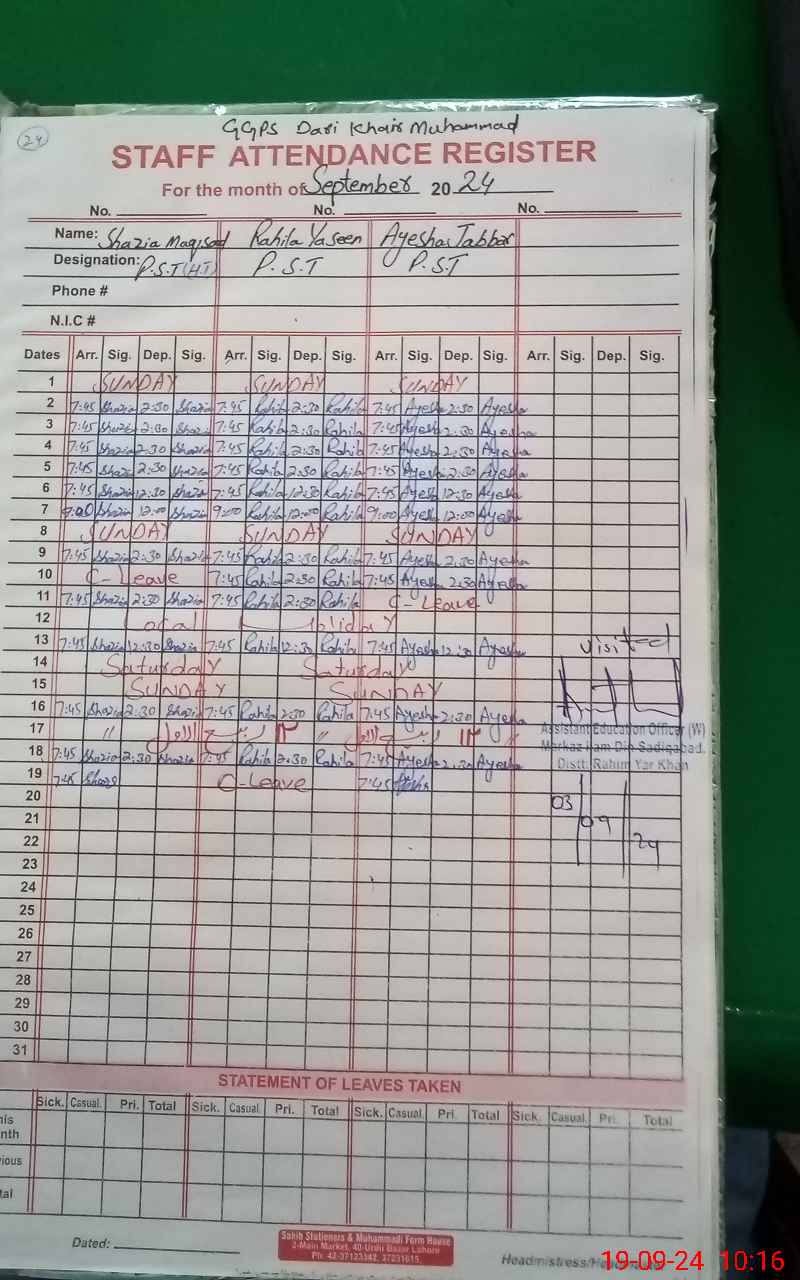 24
GGPS Dari Khair Muhammad
STAFF ATTENDANCE REGISTER
For the month of September 2024
No. No. No.
Name: Shazia Maqsood Rahila Yaseen Ayesha Jabbar
Designation: P.S.T (H.T) P.S.T P.S.T
Phone #
N.I.C #
Dates Arr. Sig. Dep. Sig. Arr. Sig. Dep. Sig. Arr. Sig. Dep. Sig. Arr. Sig. Dep. Sig.
1 SUNDAY SUNDAY SUNDAY
2 7:45 Shazia 2:30 Shazia 7:45 Rahila 2:30 Rahila 7:45 Ayesha 2:30 Ayesha
3 7:45 Shazia 2:30 Shazia 7:45 Rahila 2:30 Rahila 7:45 Ayesha 2:30 Ayesha
4 7:45 Shazia 2:30 Shazia 7:45 Rahila 2:30 Rahila 7:45 Ayesha 2:30 Ayesha
5 7:45 Shazia 2:30 Shazia 7:45 Rahila 2:30 Rahila 7:45 Ayesha 2:30 Ayesha
6 7:45 Shazia 12:30 Shazia 7:45 Rahila 12:30 Rahila 7:45 Ayesha 12:30 Ayesha
7 9:00 Shazia 12:00 Shazia 9:00 Rahila 12:00 Rahila 9:00 Ayesha 12:00 Ayesha
8 SUNDAY SUNDAY SUNDAY
9 7:45 Shazia 2:30 Shazia 7:45 Rahila 2:30 Rahila 7:45 Ayesha 2:30 Ayesha
10 C-Leave 7:45 Rahila 2:30 Rahila 7:45 Ayesha 2:30 Ayesha
11 7:45 Shazia 2:30 Shazia 7:45 Rahila 2:30 Rahila C-Leave
12 Local Holiday
13 7:45 Shazia 12:30 Shazia 7:45 Rahila 12:30 Rahila 7:45 Ayesha 12:30 Ayesha
visited
14 Saturday Saturday
15 SUNDAY SUNDAY
16 7:45 Shazia 2:30 Shazia 7:45 Rahila 2:30 Rahila 7:45 Ayesha 2:30 Ayesha
Assistant Education Officer (W)
17 〃 ۱۲ ربیع الاول 〃 ۱۲ ربیع الاول 〃
Markaz Sadiqabad.
18 7:45 Shazia 2:30 Shazia 7:45 Rahila 2:30 Rahila 7:45 Ayesha 2:30 Ayesha
Distt: Rahim Yar Khan
19 7:45 Shazia C-Leave 7:45 Ayesha
20 03
21 09
22 24
23
24
25
26
27
28
29
30
31
STATEMENT OF LEAVES TAKEN
Sick. Casual. Pri. Total Sick. Casual. Pri. Total Sick. Casual. Pri. Total Sick. Casual. Pri. Total
his
nth
vious
tal
Dated:
Sahib Stationers & Muhammadi Form House
2-Main Market, 40-Urdu Bazar Lahore
Ph: 42-37123342, 37231615
Headmistress/
19-09-24 10:16